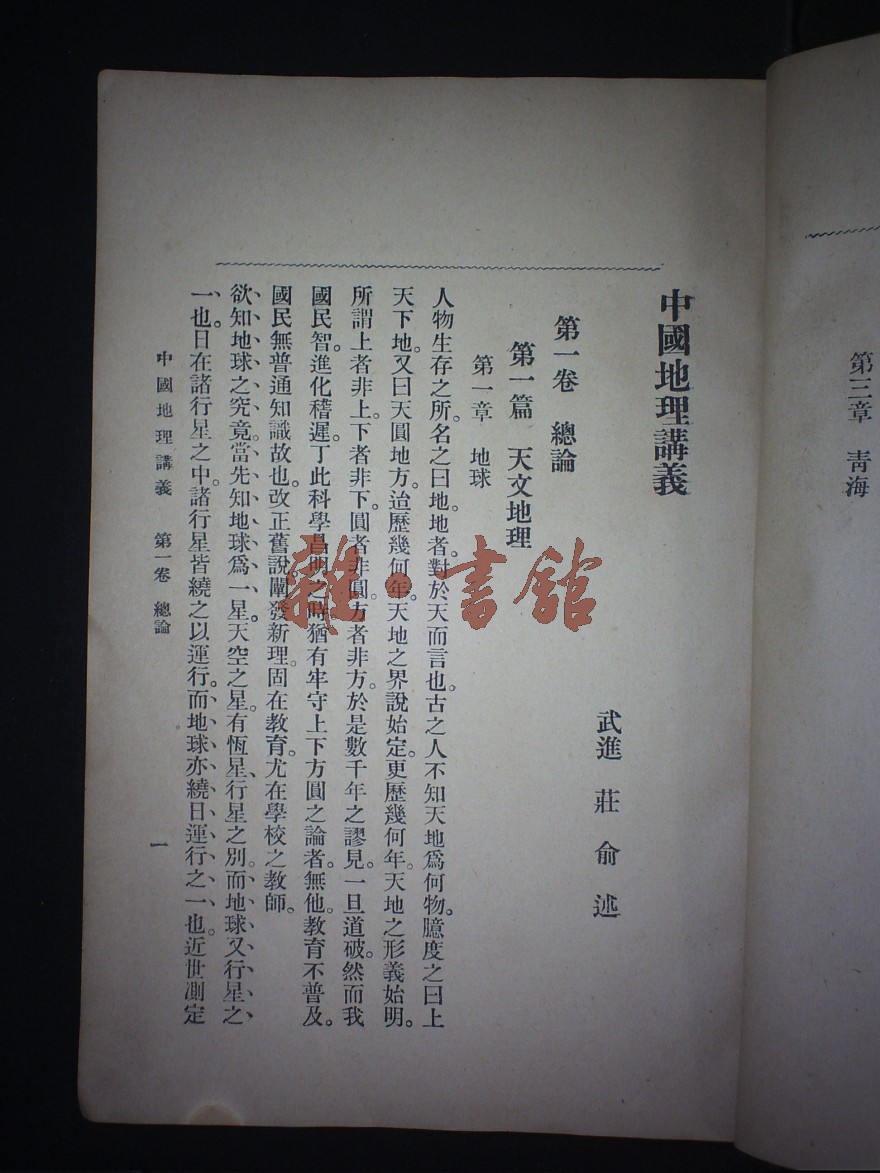 第三章　青海
中國地理講義
武進　莊俞　述
第一卷　總論
第一篇　天文地理
第一章　地球
人物生存之所。名之曰地。地者。對於天而言也。古之人不知天地爲何物。臆度之曰上
天下地。又曰天圓地方。迨歷幾何年。天地之界說始定。更歷幾何年。天地之形義始明。
所謂上者非上。下者非下。圓者非圓。方者非方。於是數千年之謬見。一旦道破。然而我
國民智進化稽遲。丁此科學昌明之時。猶有牢守上下方圓之論者。無他。教育不普及。
國民無普通知識故也。改正舊說。闡發新理。固在教育。尤在學校之教師。
欲知地球之究竟。當先知地球爲一星。天空之星。有恆星、行星之別。而地球又行星之
一也。日在諸行星之中。諸行星皆繞之以運行。而地球亦繞日運行之一也。近世測定
中國地理講義　第一卷　總論
一
雜·書館